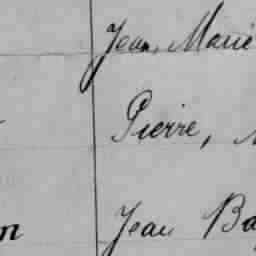 Jean, Marie
Pierre,
Jean Ba